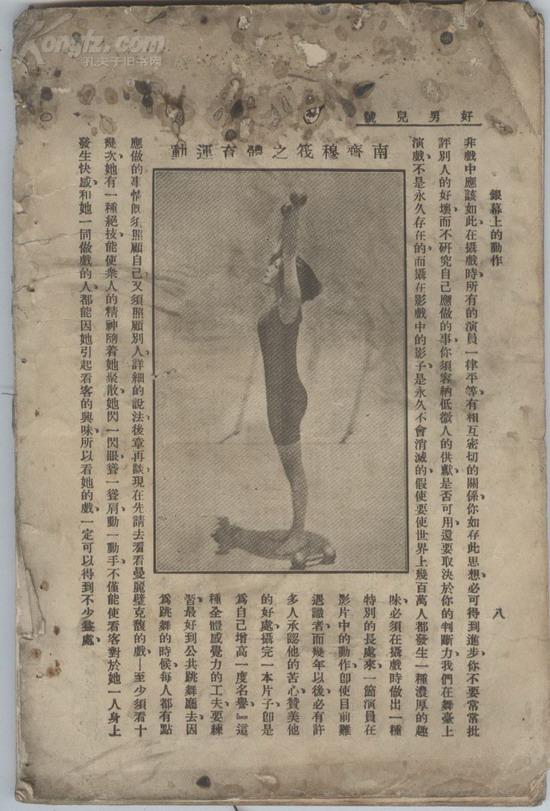 Kongfz.com
孔夫子旧书网
好男兒號
銀幕上的動作
八
非戲中應該如此、在攝戲時、所有的演員一律平等、有相互密切的關係、你如存此思想、必可得到進步、你不要常常批
評別人的好壞、而不研究自己應做的事、你須容納低微人的供獻、是否可用、還要取決於你的判斷力、我們在舞臺上
演戲、不是永久存在的、而攝在影戲中的影子、是永久不會消滅的、假使要使世界上幾百萬人、都發生一種濃厚的趣
味、必須在攝戲時、做出一種
特別的長處來、一箇演員在
影片中的動作、即使目前難
遇識者、而幾年以後、必有許
多人承認他的苦心、贊美他
的好處、攝完一本片子、卽是
爲自己增高一度名譽』這
種全體感覺力的工夫、要練
習最好到公共跳舞廳去、因
爲跳舞的時候、每人都有點
南齊穆筏之體育運動
應做的事情、旣須照顧自己、又須照顧別人、詳細的說法、後章再談、現在先請去看看曼麗壁克馥的戲—至少須看十
幾次、她有一種絕技、能使衆人的精神、隨着她聚散、她閃一閃眼、聳一聳肩、動一動手、不僅能使看客對於她一人身上
發生快感、和她一同做戲的人、都能因她引起看客的興味、所以看她的戲、一定可以得到不少益處、